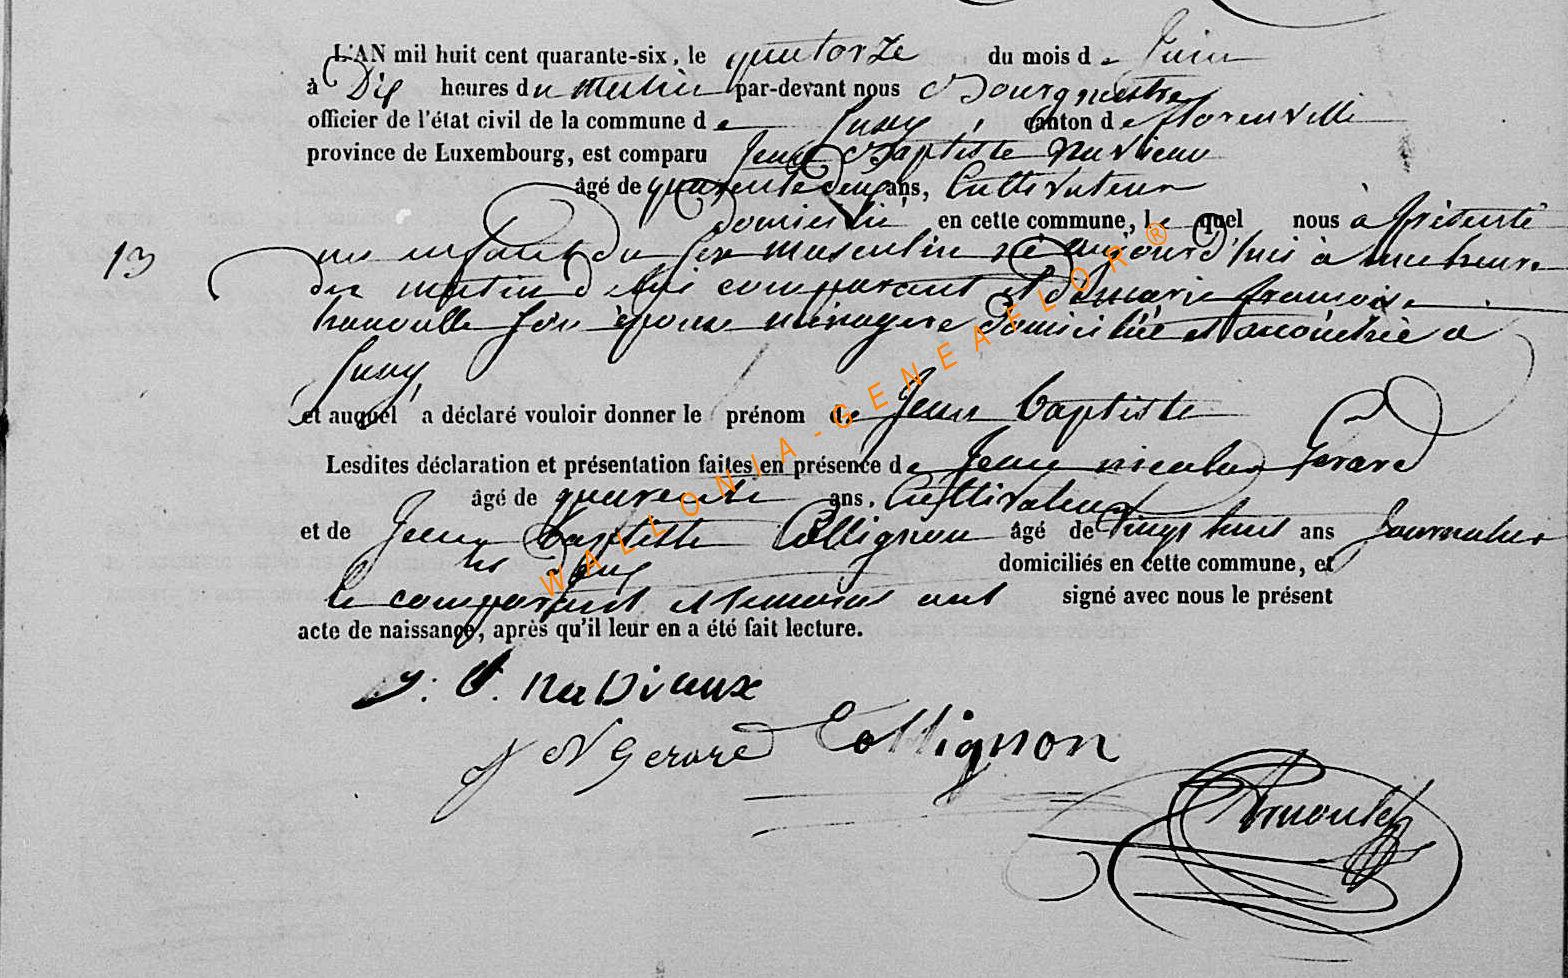 L'AN mil huit cent quarante-six, le quatorze du mois de Juin
à Dix heures du Matin par-devant nous Bourgmestre
officier de l'état civil de la commune de canton de florenville
province de Luxembourg, est comparu Jean Baptiste
âgé de quarente deux ans, Cultivateur
domicilié en cette commune, lequel nous à présenté
13 un enfant du sex masculin né aujourd'huis à une heure
du matin de lui comparant et de marie françoise
son épouse ménagere domiciliée et accouchée a
et auquel a déclaré vouloir donner le prénom de Jean baptiste
Lesdites déclaration et présentation faites en présence de Jean nicolas Gerard
âgé de quarente ans, Cultivateur
et de Jean baptiste Collignon âgé de vingt huit ans Journalier
les deux domiciliés en cette commune, et
le comparant et temoins ont signé avec nous le présent
acte de naissance, après qu'il leur en a été fait lecture.
J. B. Naviaux
J N Gerard Collignon
Arnould
WALLONIA-GENEAELOR®